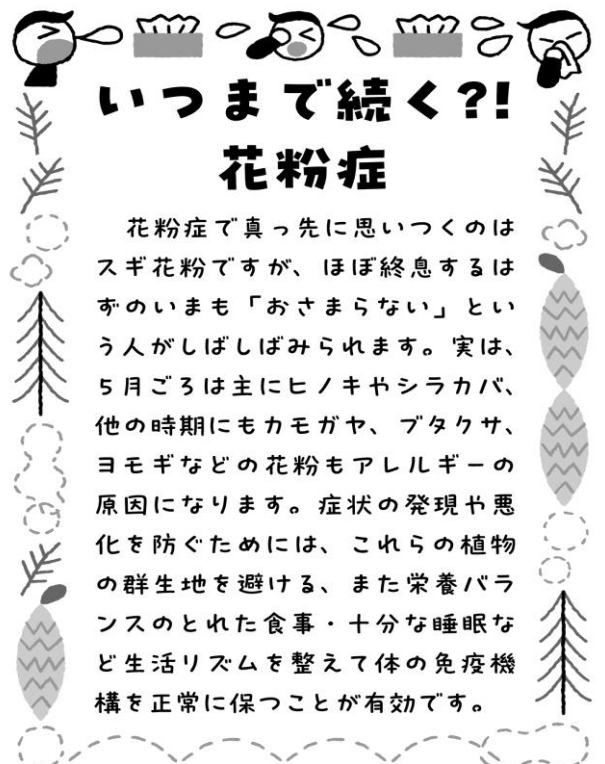 いつまで続く?!
花粉症
花粉症で真っ先に思いつくのは
スギ花粉ですが、ほぼ終息するは
ずのいまも「おさまらない」とい
う人がしばしばみられます。実は、
5月ごろは主にヒノキやシラカバ、
他の時期にもカモガヤ、ブタクサ、
ヨモギなどの花粉もアレルギーの
原因になります。症状の発現や悪
化を防ぐためには、これらの植物
の群生地を避ける、また栄養バラ
ンスのとれた食事・十分な睡眠な
ど生活リズムを整えて体の免疫機
構を正常に保つことが有効です。